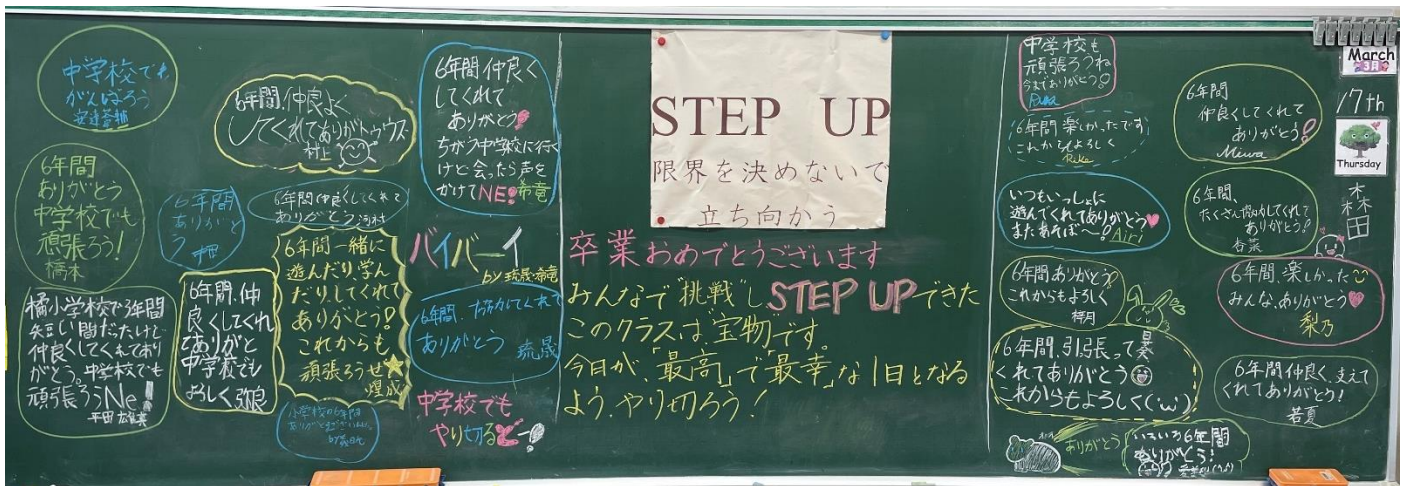 中学校でも
がんばろう
6年間
ありがとう
中学校でも
頑張ろう!
橋本
橘小学校で3年間
短い間だったけど
仲良くしてくれてあり
がとう。中学校でも
頑張ろうNe!
6年間、仲良よく
してくれてありがトゥウス
村上
6年間
ありがと
う
6年間仲良くしてくれて
ありがとう 河村
6年間、仲
良くしてくれ
てありがと
中学校でも
よろしく 弥良
6年間一緒に
遊んだり学ん
だりしてくれて
ありがとう!
これからも
頑張ろうせ
煌成
小学校の6年間
6年間仲良く
してくれて
ありがとう!
ちがう中学校に行く
けど会ったら声を
かけてNE!希竜
バイバーイ
by 琉晟・希竜
6年間、協力してくれて
ありがとう 琉晟
中学校でも
やり切るぞー!
STEP UP
限界を決めないで
立ち向かう
卒業おめでとうございます
みんなで"挑戦"し STEP UPできた
このクラスは"宝物"です。
今日が、「最高」で"最幸"な1日となる
よう、やり切ろう!
中学校も
頑張ろうね
今までありがとう
Ruka
6年間楽しかったです
これからもよろしく
Rika
いつもいっしょに
遊んでくれてありがとう♥
またあそぼ〜! Airi
6年間ありがとう!
これからもよろしく
梓月
6年間、引っ張って
くれてありがとう
これからもよろしく(・ω・)
ありがとう
いろいろ6年間
ありがとう!
6年間
仲良くしてくれて
ありがとう!
Miwa
6年間、
たくさん協力してくれて
ありがとう!
杏菜
6年間、楽しかった
みんな、ありがとう♥
梨乃
6年間仲良く、支えて
くれてありがとう!
若夏
March
3月
17th
Thursday
森田